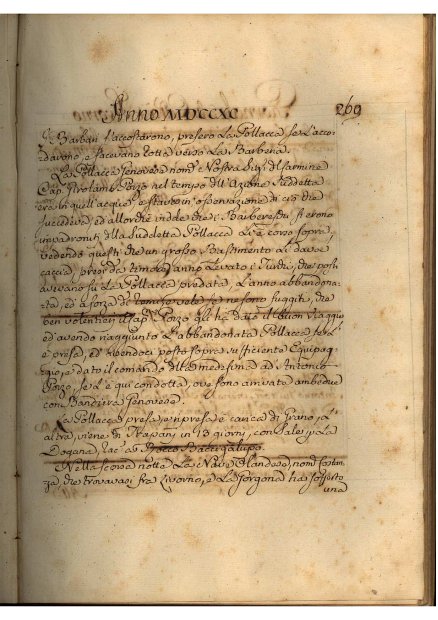 Anno MDCCXC 269
I Barbari s'accostarono, presero la Pollacca, se l'accor
davono, e facevano rotta verso la Barberia.
La Pollacca Genovese nom.ª Nostra Sig.ª del Carmine
Cap. Girolamo Ponzo nel tempo dell'Azione Suddetta
era in quell'acque, e stava in osservazione di ciò che
succedeva, ed allor che vidde che i Barbereschi si erono
impadroniti della Suddetta Pollacca li è corso sopra,
vedendo questi che un grosso Bastimento li dava
caccia, presi da timore anno Levato i Turchi, che posti
avevano su la Pollacca predata, l'anno abbandona-
ta, ed a forza di remi, e vele se ne sono fuggiti, che
ben volentieri il Cap. Ponzo gli ha dato il buon Viaggio
ed avendo raggiunto l'abbandonata Pollacca, se
è presa, ed avendoci posto sopra sufficiente Equipag-
gio, e dato il comando della medesima ad Antonio
Ponzo, se l'è qui condotta, ove sono arrivate ambedue
con Bandiera Genovese.
La Pollacca presa, e ripresa è carica di Grano, l'
altra, viene di Trapani in 13 giorni, con Sale p. la
Dogana, Rac. a Bacigalupo.
Nella scorsa notte la Nave Olandese, nom.
che trovavasi fra Livorno, e la Gorgona ha sofferto
una